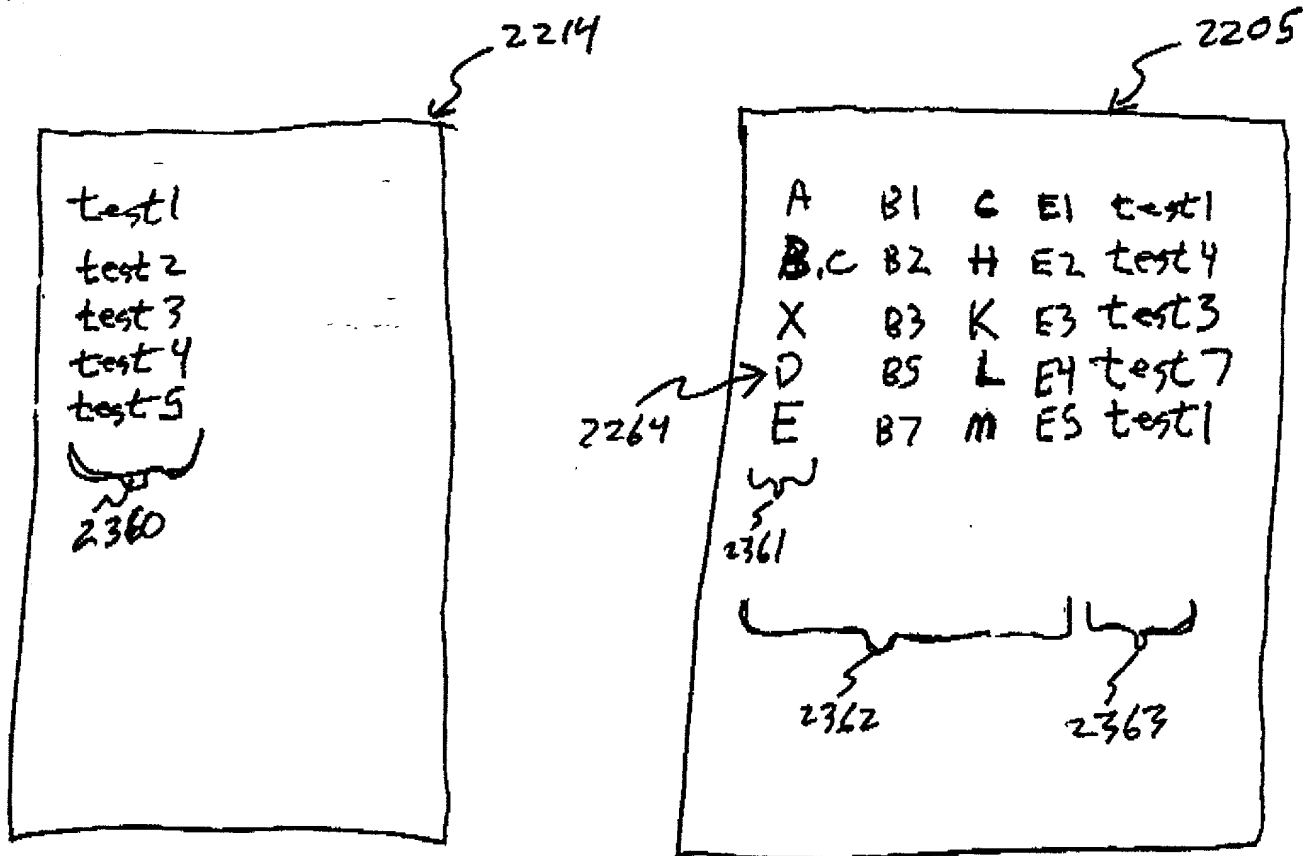 2214
2205
test1
test2
test3
test4
test5
2360
A B1 G E1 test1
B,C B2 H E2 test4
X B3 K E3 test3
D B5 L E4 test7
E B7 M E5 test1
2264
2361
2362
2363